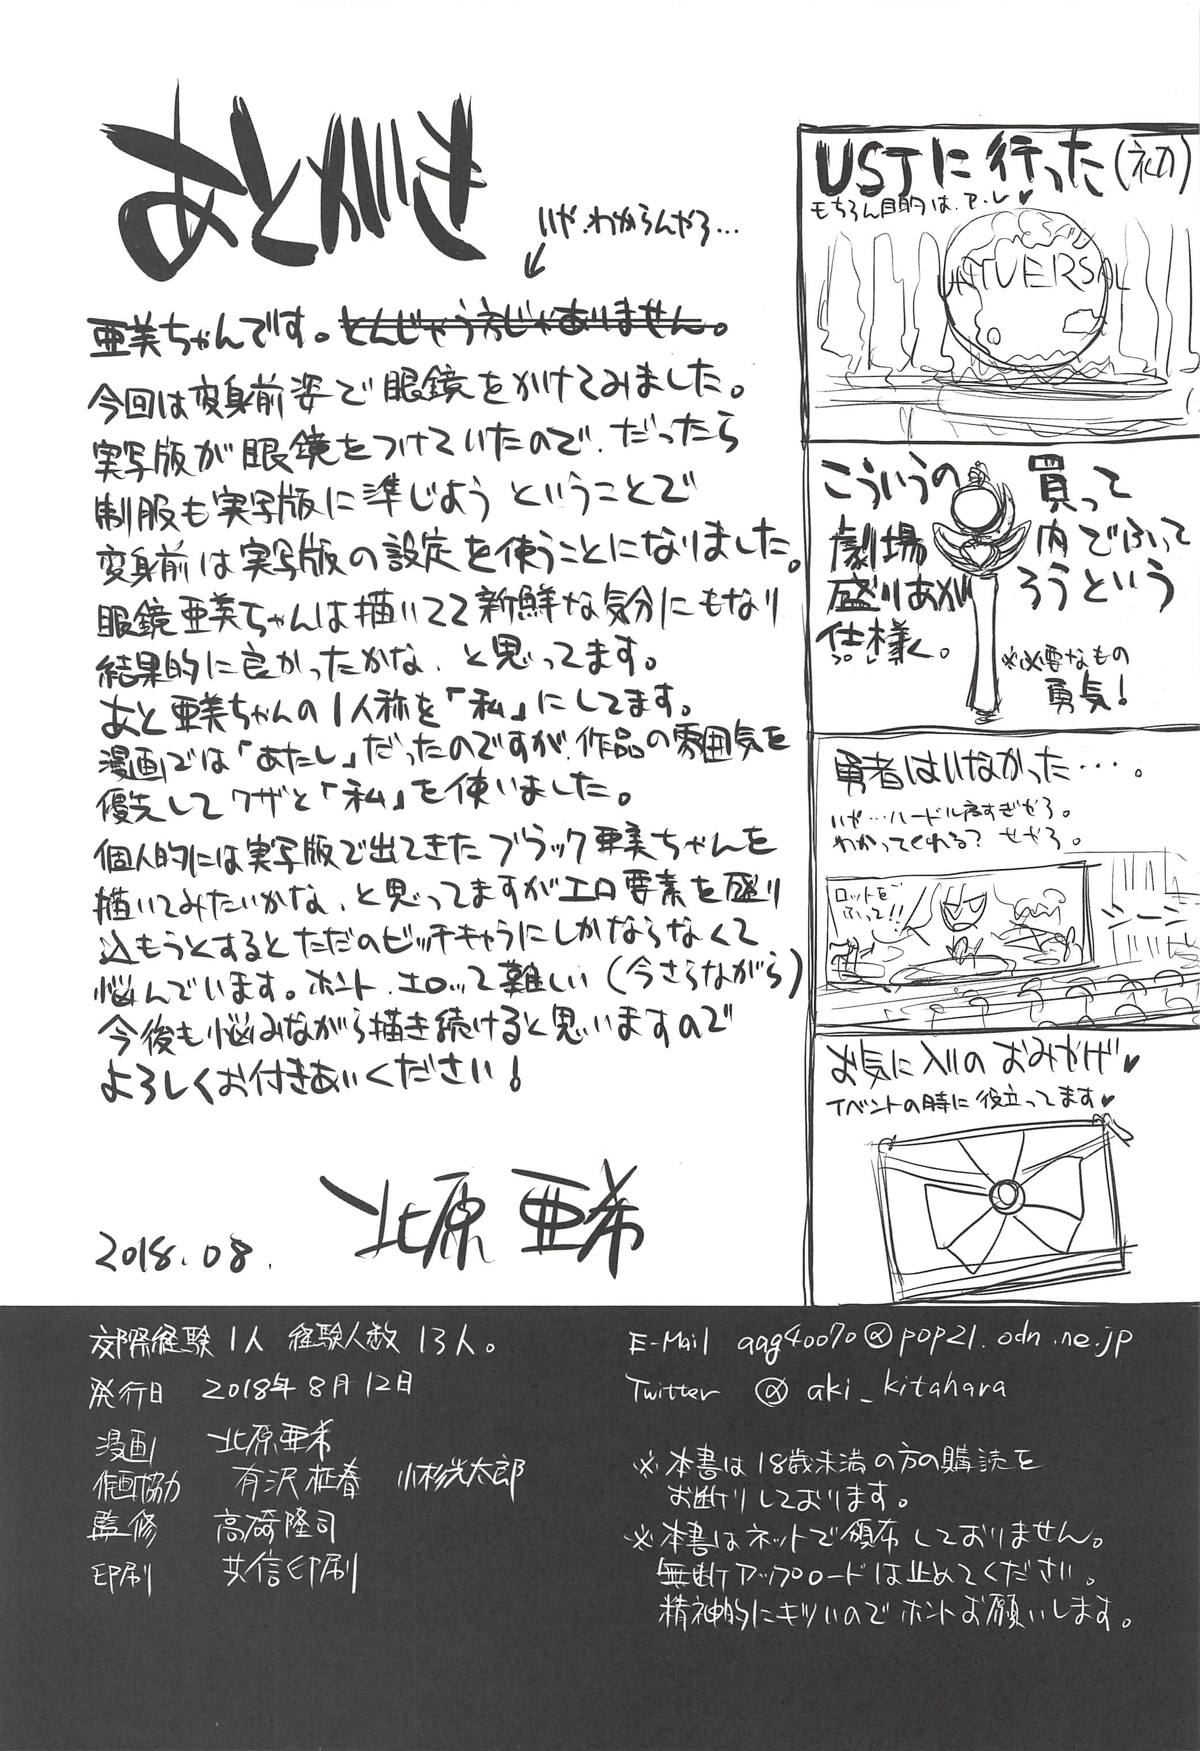 あとがき
いや、わからんやろ…
亜美ちゃんです。とんじゃう方じゃありません。
今回は変身前姿で眼鏡をかけてみました。
実写版が眼鏡をつけていたので、だったら
制服も実写版に準じようということで
変身前は実写版の設定を使うことになりました。
眼鏡亜美ちゃんは描いてて新鮮な気分にもなり
結果的に良かったかな、と思ってます。
あと亜美ちゃんの1人称を「私」にしてます。
漫画では「あたし」だったのですが、作品の雰囲気を
優先してワザと「私」を使いました。
個人的には実写版で出てきたブラック亜美ちゃんを
描いてみたいかな、と思ってますがエロ要素を盛り
込もうとするとただのビッチキャラにしかならなくて
悩んでいます。ホント、エロって難しい(今さらながら)
今後も悩みながら描き続けると思いますので
よろしくお付きあいください!
2018.08.
北原亜希
USJに行った(初)
もちろん目的は、ア・レ♥
UNIVERSAL
こういうの買って
劇場内でふって
盛りあがろうという
仕様。
※必要なもの
勇気!
勇者はいなかった・・・。
いや…ハードル高すぎやろ。
わかってくれる?せやろ。
ロットを
ふって!!
シーン
お気に入りのおみやげ♥
イベントの時に役立ってます♥
交際経験1人 経験人数13人。
発行日 2018年8月12日
漫画 北原亜希
作画協力 有沢柾春 小杉光太郎
監修 高碕隆司
印刷 共信印刷
E-Mail aag40070@pop21.odn.ne.jp
Twitter @aki_kitahara
※本書は18歳未満の方の購読を
お断りしております。
※本書はネットで頒布しておりません。
無断アップロードは止めてください。
精神的にキツいのでホントお願いします。